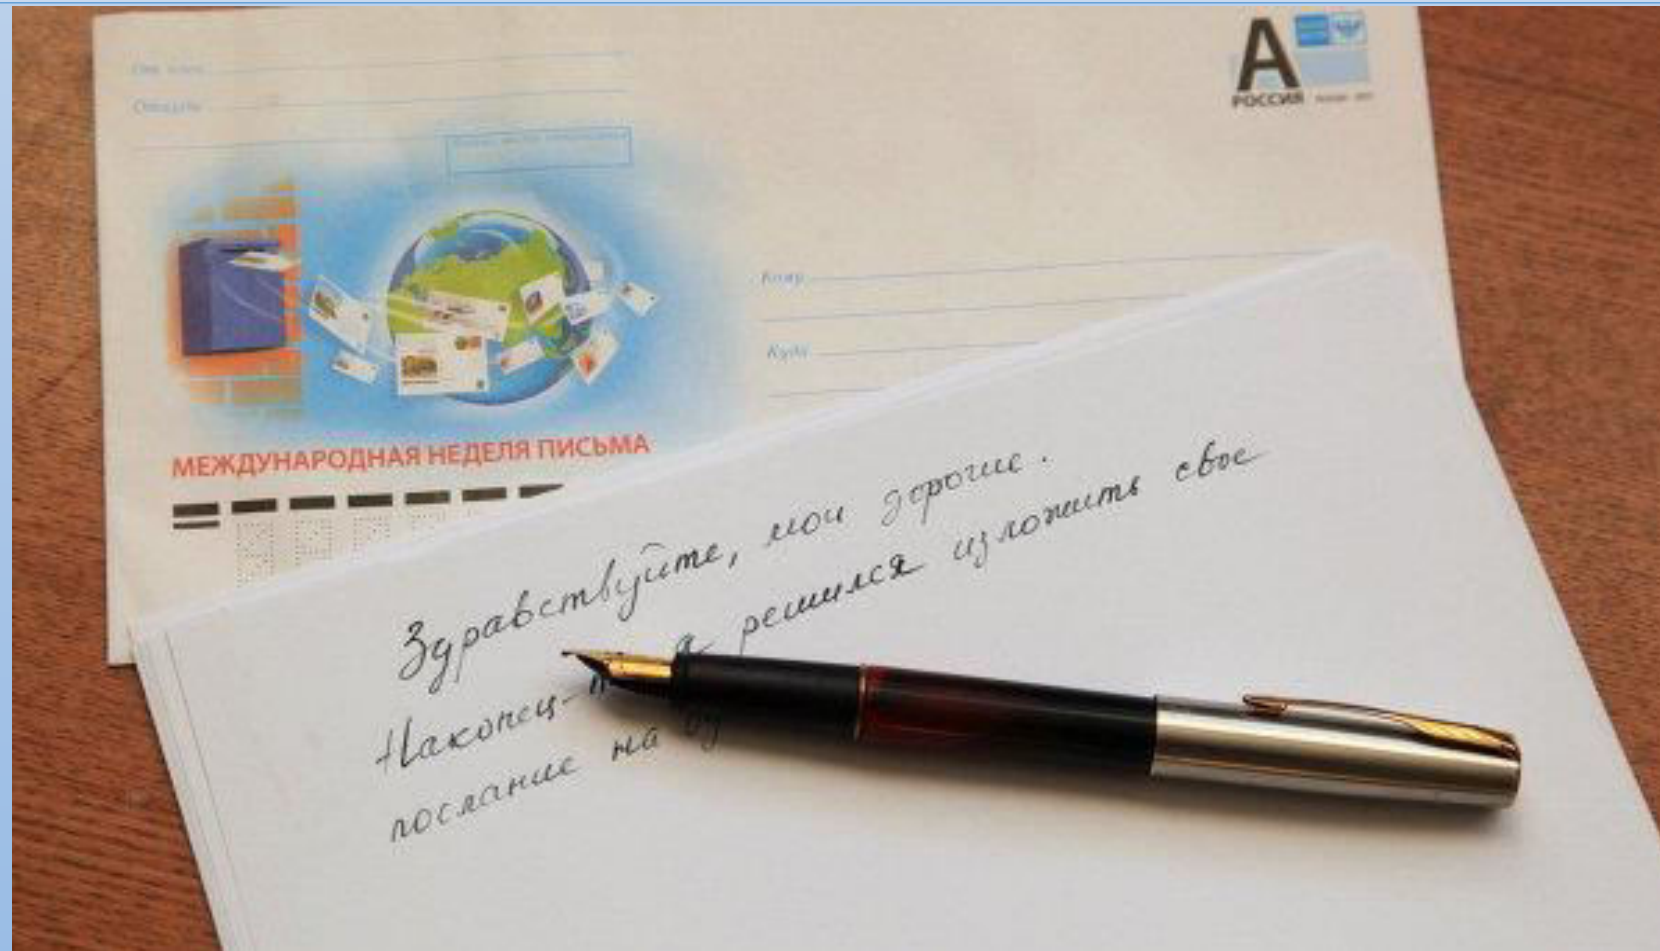 От кого
Откуда
А
РОССИЯ
Кому
Куда
МЕЖДУНАРОДНАЯ НЕДЕЛЯ ПИСЬМА
Здравствуйте, мои дорогие.
Наконец- я решился изложить свое
послание на